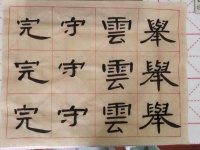 舉舉舉
雲雲雲
守守守
完完完